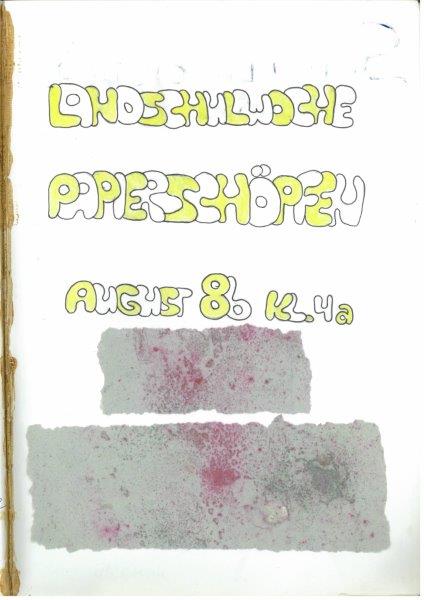 LANDSCHULWOCHE
PAPIERSCHÖPFEN
AUGUST 86 KL. 4a